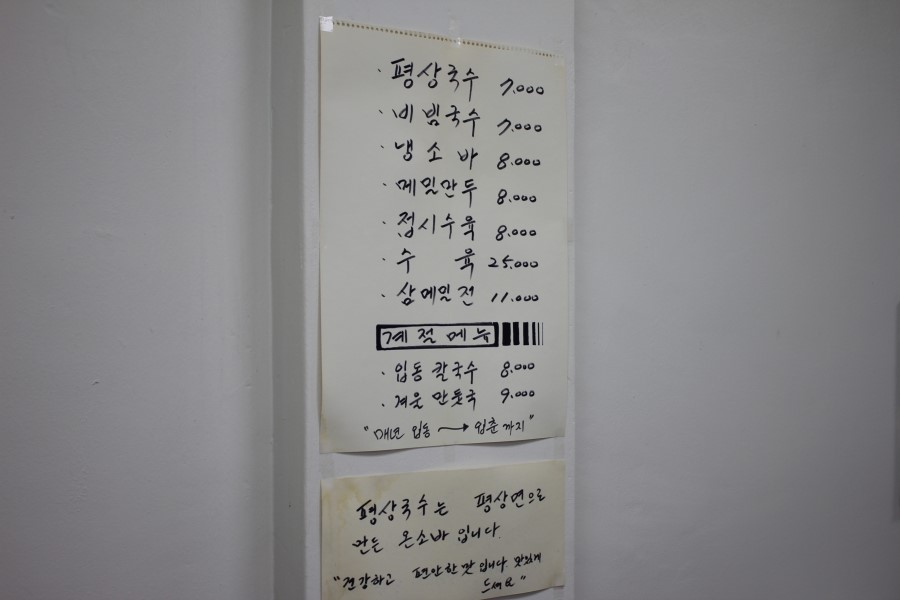 · 평상국수 7.000
· 비빔국수 7.000
· 냉소바 8.000
· 메밀만두 8.000
· 접시수육 8.000
· 수육 25.000
· 삼메밀전 11.000
계절메뉴
· 입동 칼국수 8.000
· 겨울 만둣국 9.000
"매년 입동 → 입춘 까지"
평상국수는 평상면으로
만든 온소바 입니다.
"건강하고 편안한 맛 입니다. 맛있게
드세요"